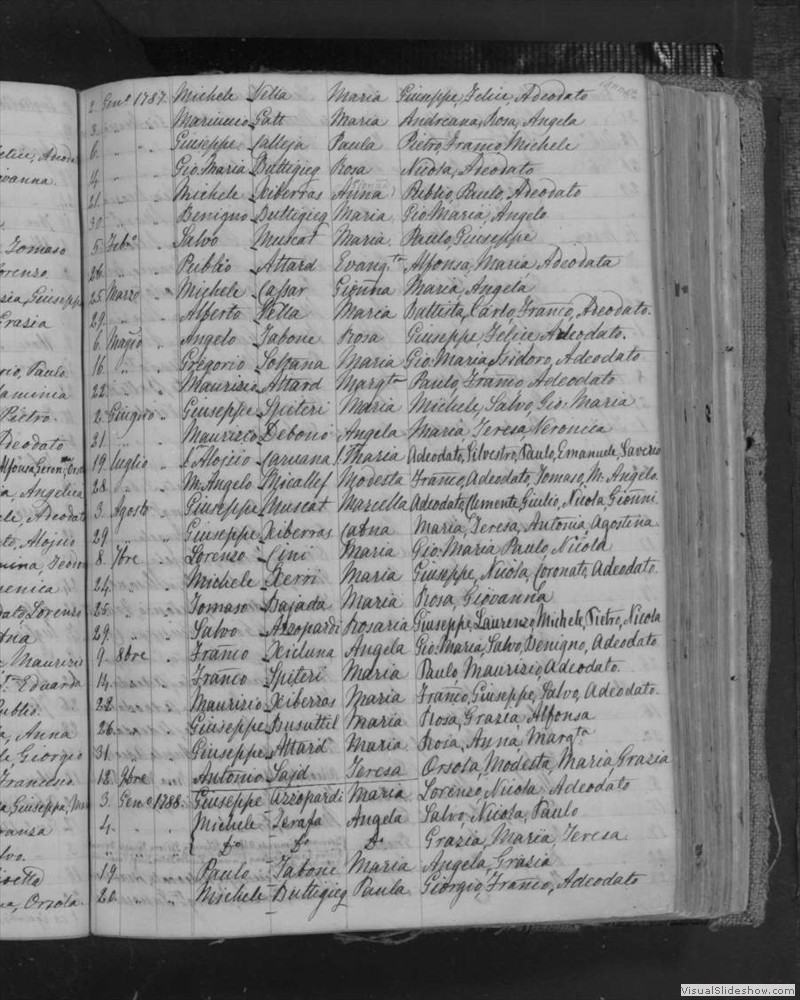 2. Genº 1787. Michele Vella Maria Giuseppe, Felice, Adeodato
3. " " Gatt Maria Andreana, Rosa, Angela
6. " " Giuseppe Valleja Paula Pietro, Franco, Michele
4. " " Gio. Maria Buttigieg Rosa Nicola, Adeodato
21. " " Michele Xiberras Anna Publio, Paulo, Adeodato
30. " " Benigno Buttigieg Maria Gio Maria, Angelo
5. Febº " Salvo Muscat Maria. Paulo, Giuseppe
26. " " Publio Attard Evang.ta Alfonsa, Maria Adeodata
25. Marzo " Michele Cassar Gionna Maria Angela
29. " " Alberto Vella Maria Battista, Carlo, Franco, Adeodato.
6. Magio " Angelo Tabone Rosa Giuseppe, Felice Adeodato.
16. " " Gregorio Soltana Maria Gio. Maria, Isidoro, Adeodato
22. " " Maurizio Attard Margta Paulo, Franco Adeodato
2. Giugno " Giuseppe Spiteri Maria Michele, Salvo, Gio. Maria
21. " " Maurizio Debono Angela Maria Teresa Veronica
19. luglio " S. Aloisio Caruana Maria Adeodato, Silvestro, Paulo, Emanuele, Saverio
28. " " M. Angelo Micallef Modesta Franco, Adeodato, Tomaso, M. Angelo.
3. Agosto " Giuseppe Muscat Marcella Adeodato, Clemente, Giulio, Nicola, Gionni
29. " " Giuseppe Xiberras Catna Maria, Teresa, Antonia, Agostina
8. 7bre " Lorenzo Cini Maria Gio. Maria Paulo, Nicola
24. " " Michele Xerri Maria Giuseppe, Nicola, Coronato, Adeodato.
25. " " Tomaso Bajada Maria Rosa, Giovanna
29. " " Salvo Azzopardi Rosaria Giuseppe, Laurenzo, Michele, Pietro, Nicola
9. 8bre " Franco Xicluna Angela Gio. Maria, Salvo, Benigno, Adeodato
14. " " Franco Spiteri Maria Paulo, Maurizio, Adeodato.
22. " " Maurizio Xiberras Maria Franco, Giuseppe, Salvo, Adeodato.
26. " " Giuseppe Busuttil Maria Rosa, Grazia, Alfonsa
31. " " Giuseppe Attard Maria Rosa, Anna, Margta
12. 9bre " Antonio Sajd Teresa Orsola, Modesta, Maria, Grazia
3. Genº 1788. Giuseppe Azzopardi Maria Lorenzo, Nicola Adeodato
4. " " Michele Angela Salvo, Nicola, Paulo
" " " Dº Dº Dº Grazia, Maria, Teresa
19 " " Paulo Tabone Maria Angela, Grazia
20 " " Michele Buttigieg Paula Giorgio, Franco, Adeodato
VisualSlideshow.com